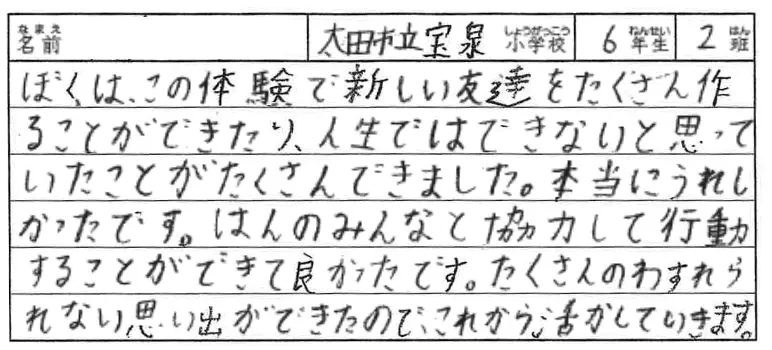 名前 なまえ 太田市立宝泉小学校 しょうがっこう 6年生 ねんせい 2班 はん
ぼくは、この体験で新しい友達をたくさん作
ることができたり、人生ではできないと思って
いたことがたくさんできました。本当にうれし
かったです。はんのみんなと協力して行動
することができて良かったです。たくさんのわすれら
れない思い出ができたので、これから活かしていきます。